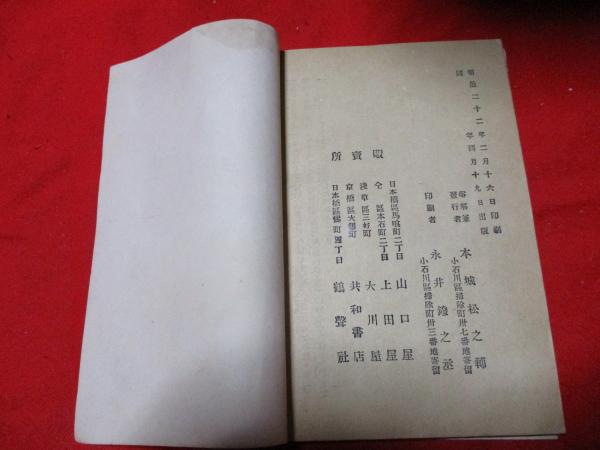 明治二十二年二月十六日印刷
同 年四月十九日出版
編輯兼
發行者
本城松之輔
小石川區掃除町卅七番地寄留
印刷者
永井鐘之丞
小石川區掃除町卅三番地寄留
販賣所
日本橋區馬喰町二丁目 山口屋
仝 區本石町二丁目 上田屋
淺草區三好町 大川屋
京橋區大鋸町 共和書店
日本橋區 町四丁目 鶴聲社